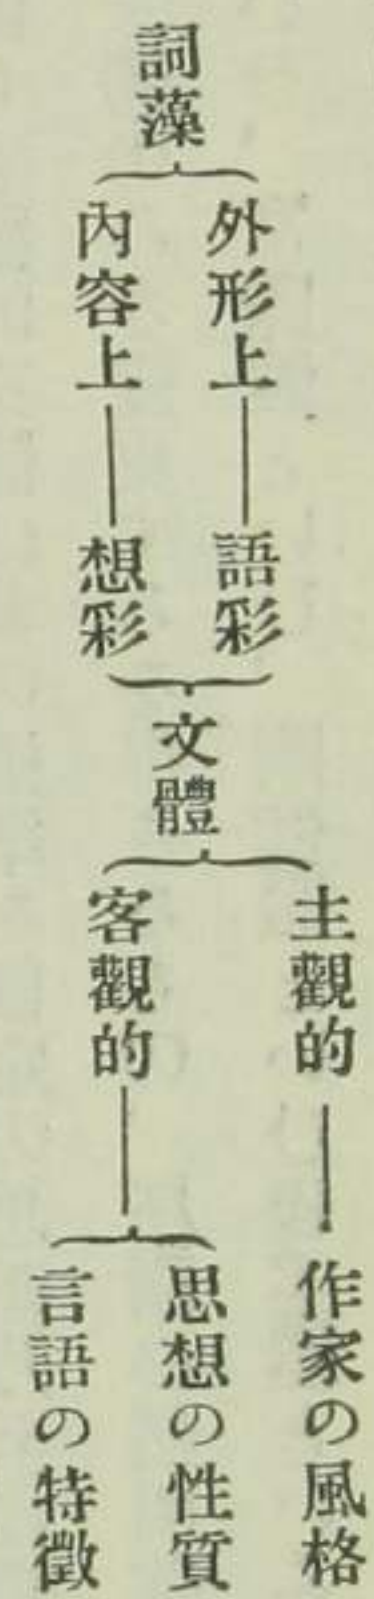 詞藻
外形上―語彩
內容上―想彩
文體
主觀的―作家の風格
客觀的―
思想の性質
言語の特徵